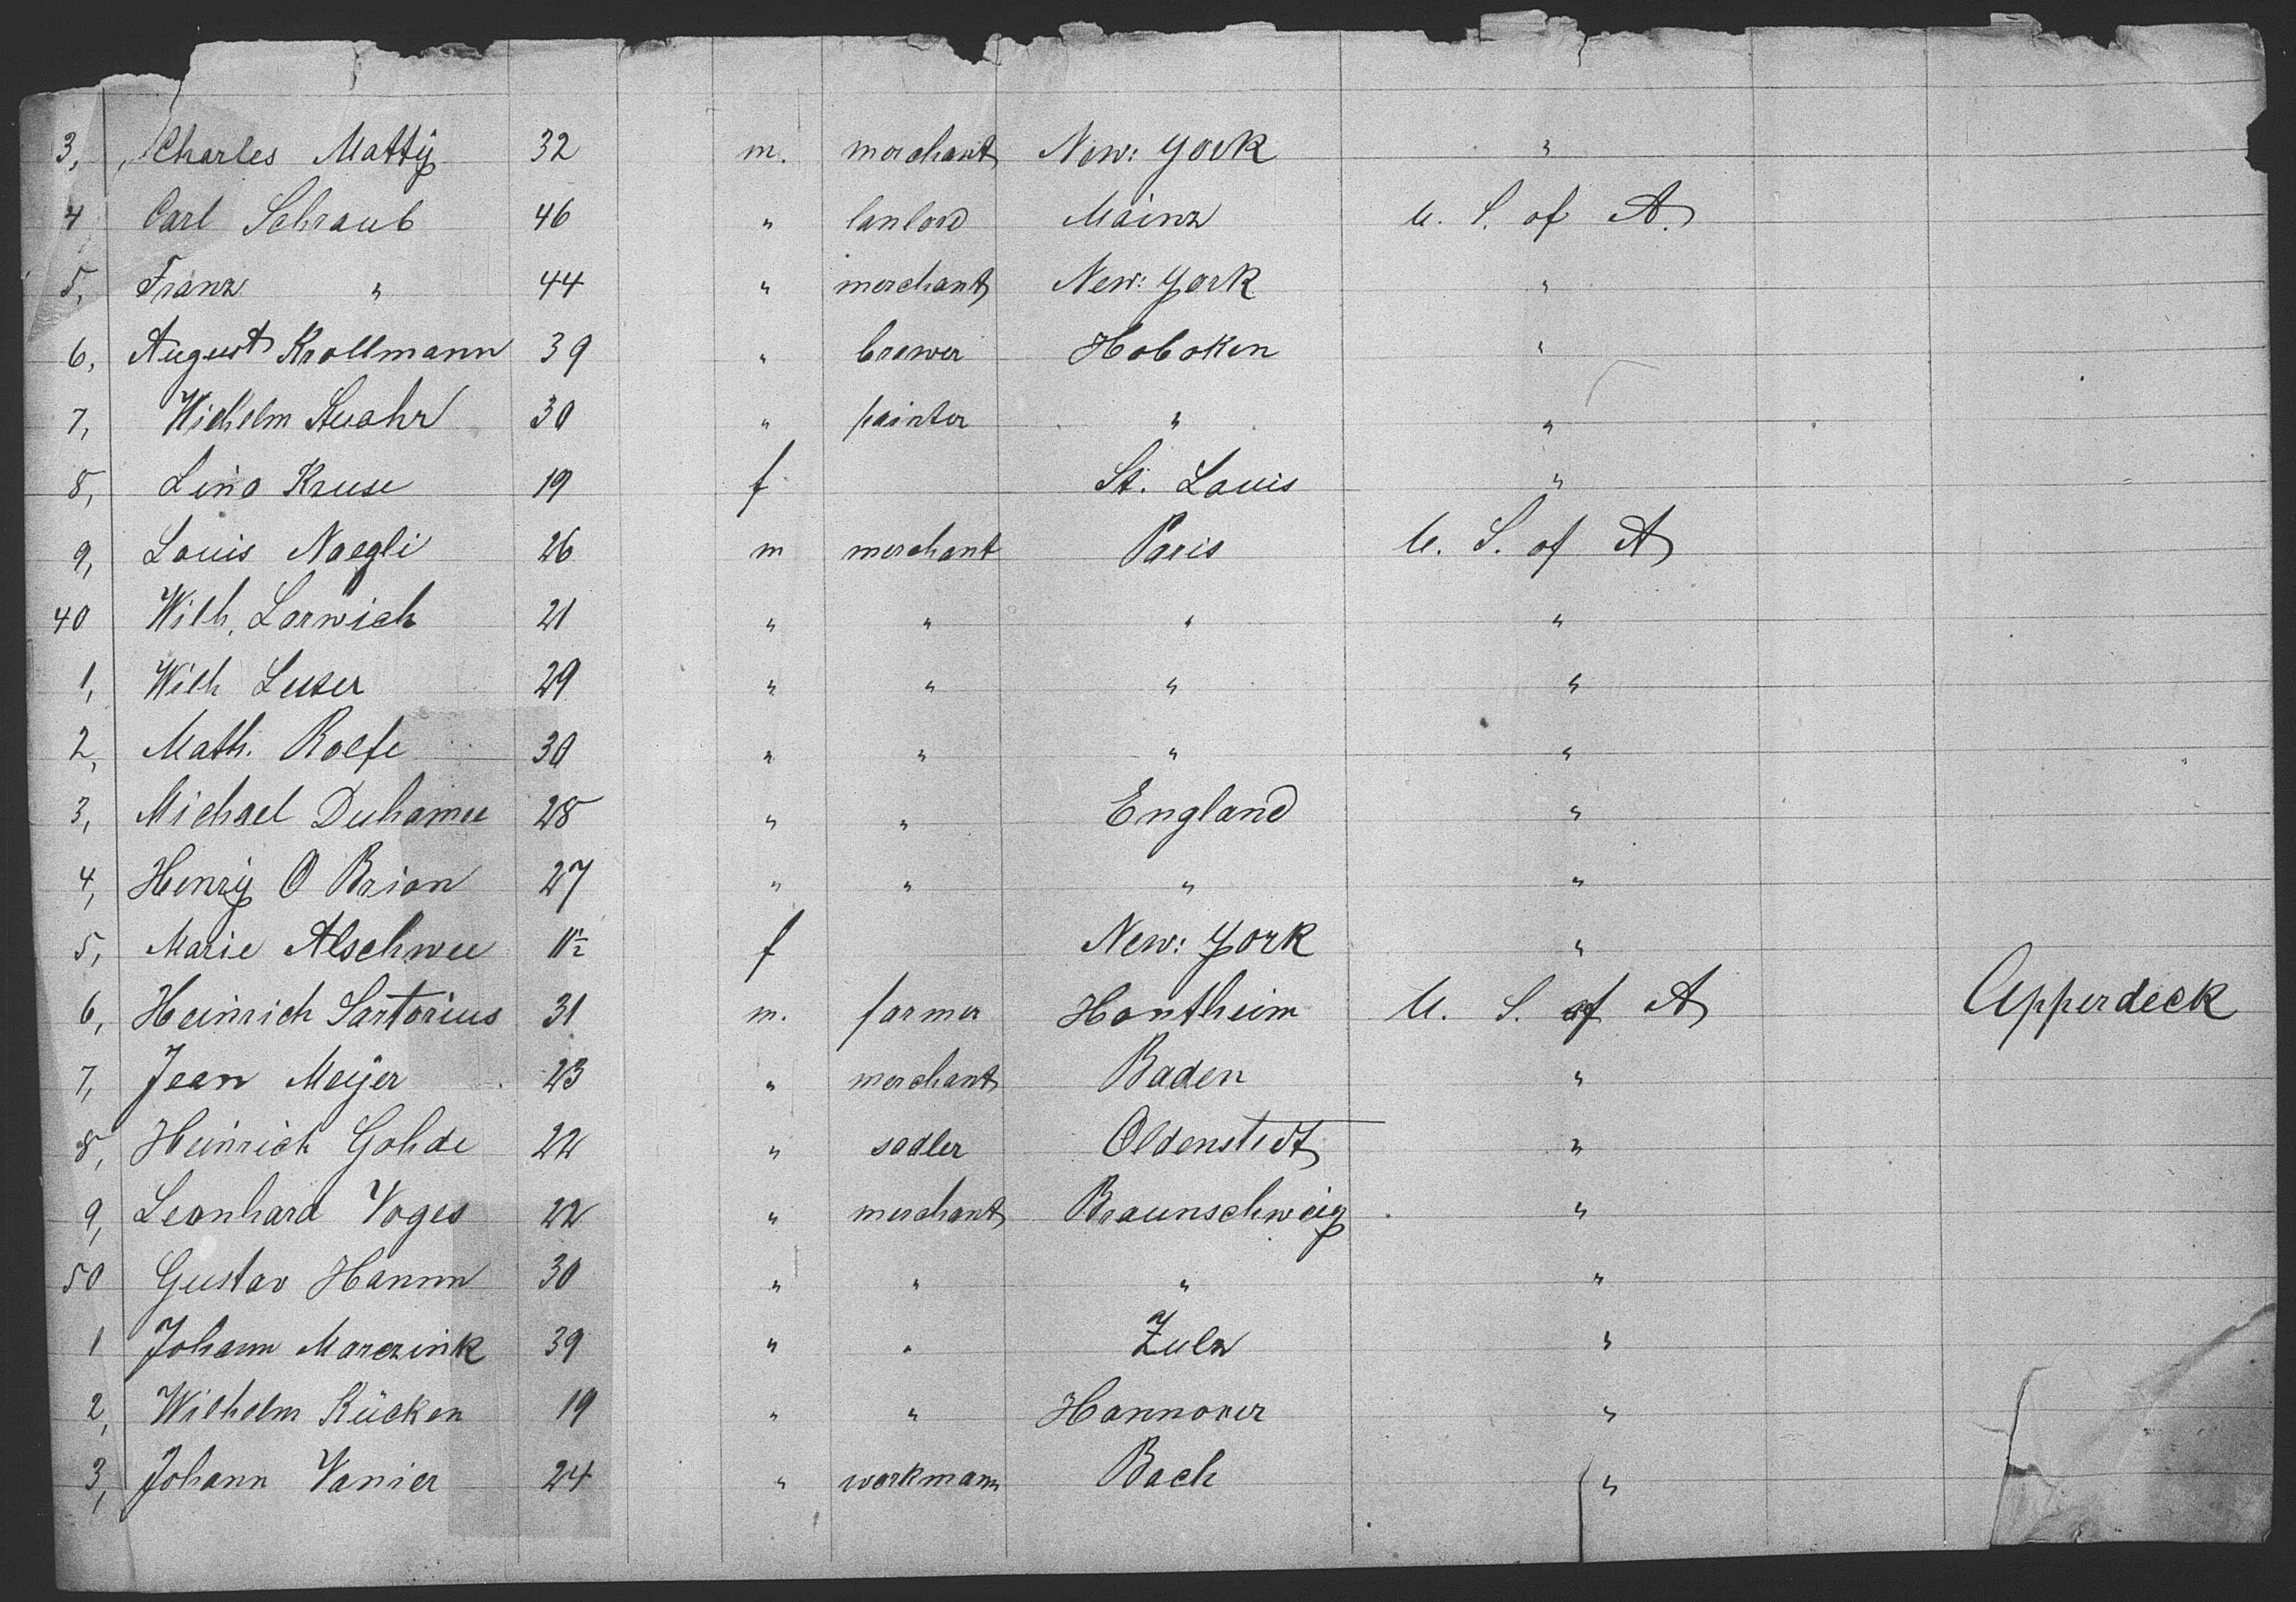 3, Charles Mattÿ 32 m. merchant New: York "
4 Carl Schraub 46 " lanlord Mainz U. S. of A.
5, Franz " 44 " merchant New: York "
6, August Krollmann 39 " brewer Hoboken "
7, Wilhelm 30 " painter " "
8, Lina Kruse 19 f St. Louis "
9, Louis Naegli 26 m merchant Paris U. S. of A
40 Wilh. Lorwich 21 " " " "
1, Wilh 29 " " " "
2, Math. Rolfe 30 " " " "
3, Michael 28 " " England "
4, Henrÿ O Brian 27 " " " "
5, Marie 11½ f New: York "
6, Heinrich Sartorius 31 m. farmer Hontheim U. S. of A Upperdeck
7, Jean Meÿer 23 " merchant Baden "
8, Heinrich Gohde 22 " sadler Oldenstedt "
9, Leonhard Voges 22 " merchant Braunschweig "
50 Gustav Hamm 30 " " " "
1 Johann Marczink 39 " " Zulz "
2, Wilhelm Kücken 19 " " Hannover "
3, Johann Vanier 24 " workmann Bach "